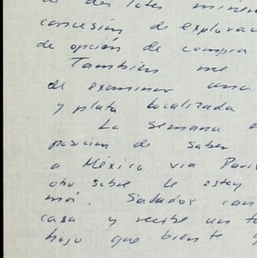 de dos lotes
concesión de explorac
de opción de compra
También me
de examinar una
y plata localizada
La semana e
posición de saber
a México via Pari
otro sobre le estoy
má. Saludos can
casa y recibe un
hijo que bien te q